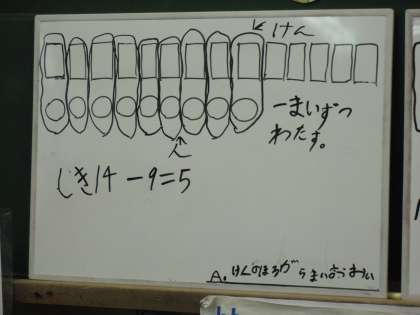 けん
一まいずつ
わたす。
人
しき14-9=5
A. けんのほうが5まいおおい